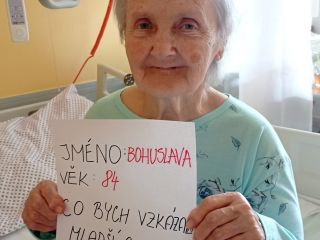 JMÉNO: BOHUSLAVA
VĚK: 84
CO BYCH VZKÁZALA